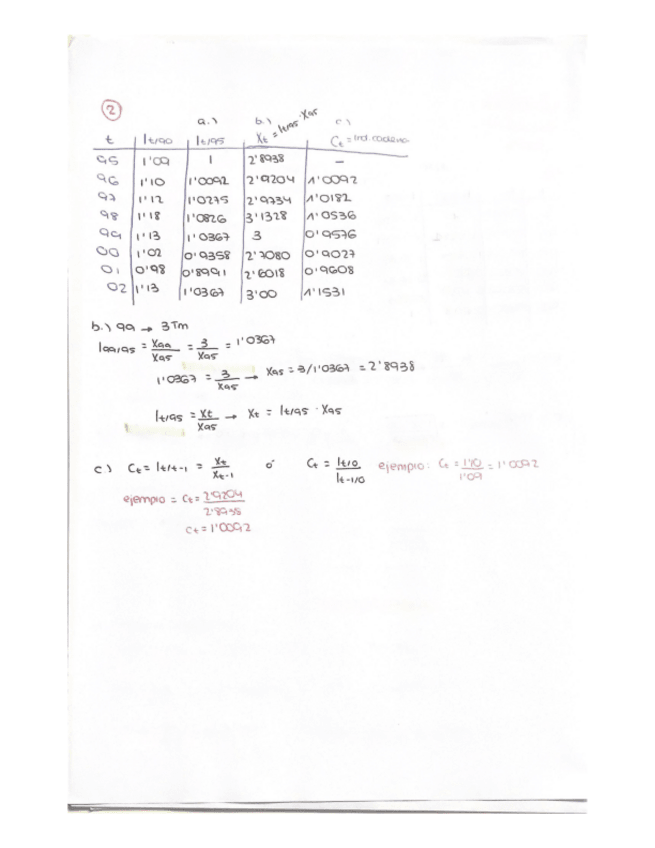 2
a.) b.) c.)
t It/90 It/95 Xt = It/95 · X95 Ct = Ind. cadena
95 1'09 1 2'8938 –
96 1'10 1'0092 2'9204 1'0092
97 1'12 1'0275 2'9734 1'0182
98 1'18 1'0826 3'1328 1'0536
99 1'13 1'0367 3 0'9576
00 1'02 0'9358 2'7080 0'9027
01 0'98 0'8991 2'6018 0'9608
02 1'13 1'0367 3'00 1'1531
b.) 99 → 3 Tm
I99/95 = X99/X95 = 3/X95 = 1'0367
1'0367 = 3/X95 → X95 = 3/1'0367 = 2'8938
It/95 = Xt/X95 → Xt = It/95 · X95
c.) Ct = It/t-1 = Xt/Xt-1 o' Ct = It/0/It-1/0 ejemplo: Ct = 1'10/1'09 = 1'0092
ejemplo = Ct = 2'9204/2'8938
Ct = 1'0092